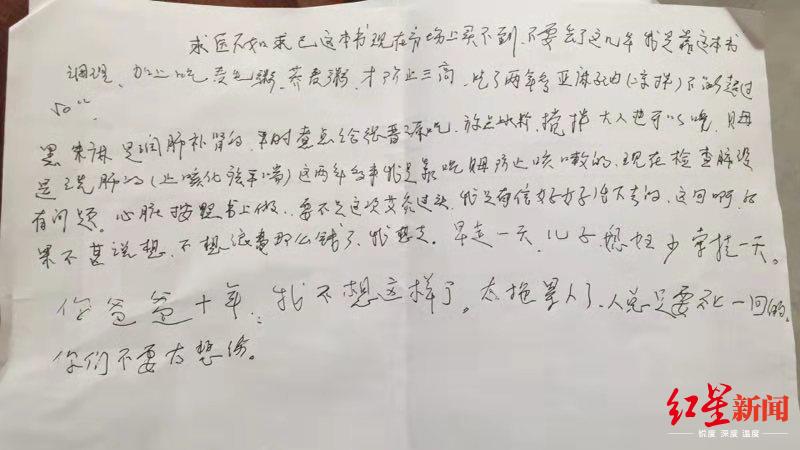 求医不如求己这本书现在市场上买不到,不要丢了这几年 我是靠这本书
调理、加上吃 粥、荞麦粥、才防止三高、吃了两年多亚麻子油(凉拌)不能超过
50°。
黑 芝麻 是润肺补肾的,平时煮点给张晋 吃,放点 ,搅拌 大人也可以喝,
是 肺的(止咳化痰平喘)这两年多来我是靠吃 防止咳嗽的,现在检查肺没
有问题。心脏 按照书上做、要不是这次 过头,我是有信 好好活下去的,这回啊,如
果不 想,不想浪费那么钱了,我想走。早走一天,儿子媳妇少牵挂一天。
你爸爸十年,我不想这样了。太拖累人了,人总是要死一回的。
你们不要太悲伤。
红星新闻
锐度 深度 温度